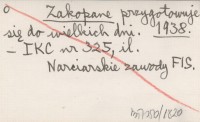 o Zakopane przygotowuje
się do wielkich dni. 1938.
– IKC nr 325, il.
Narciarskie zawody FIS.